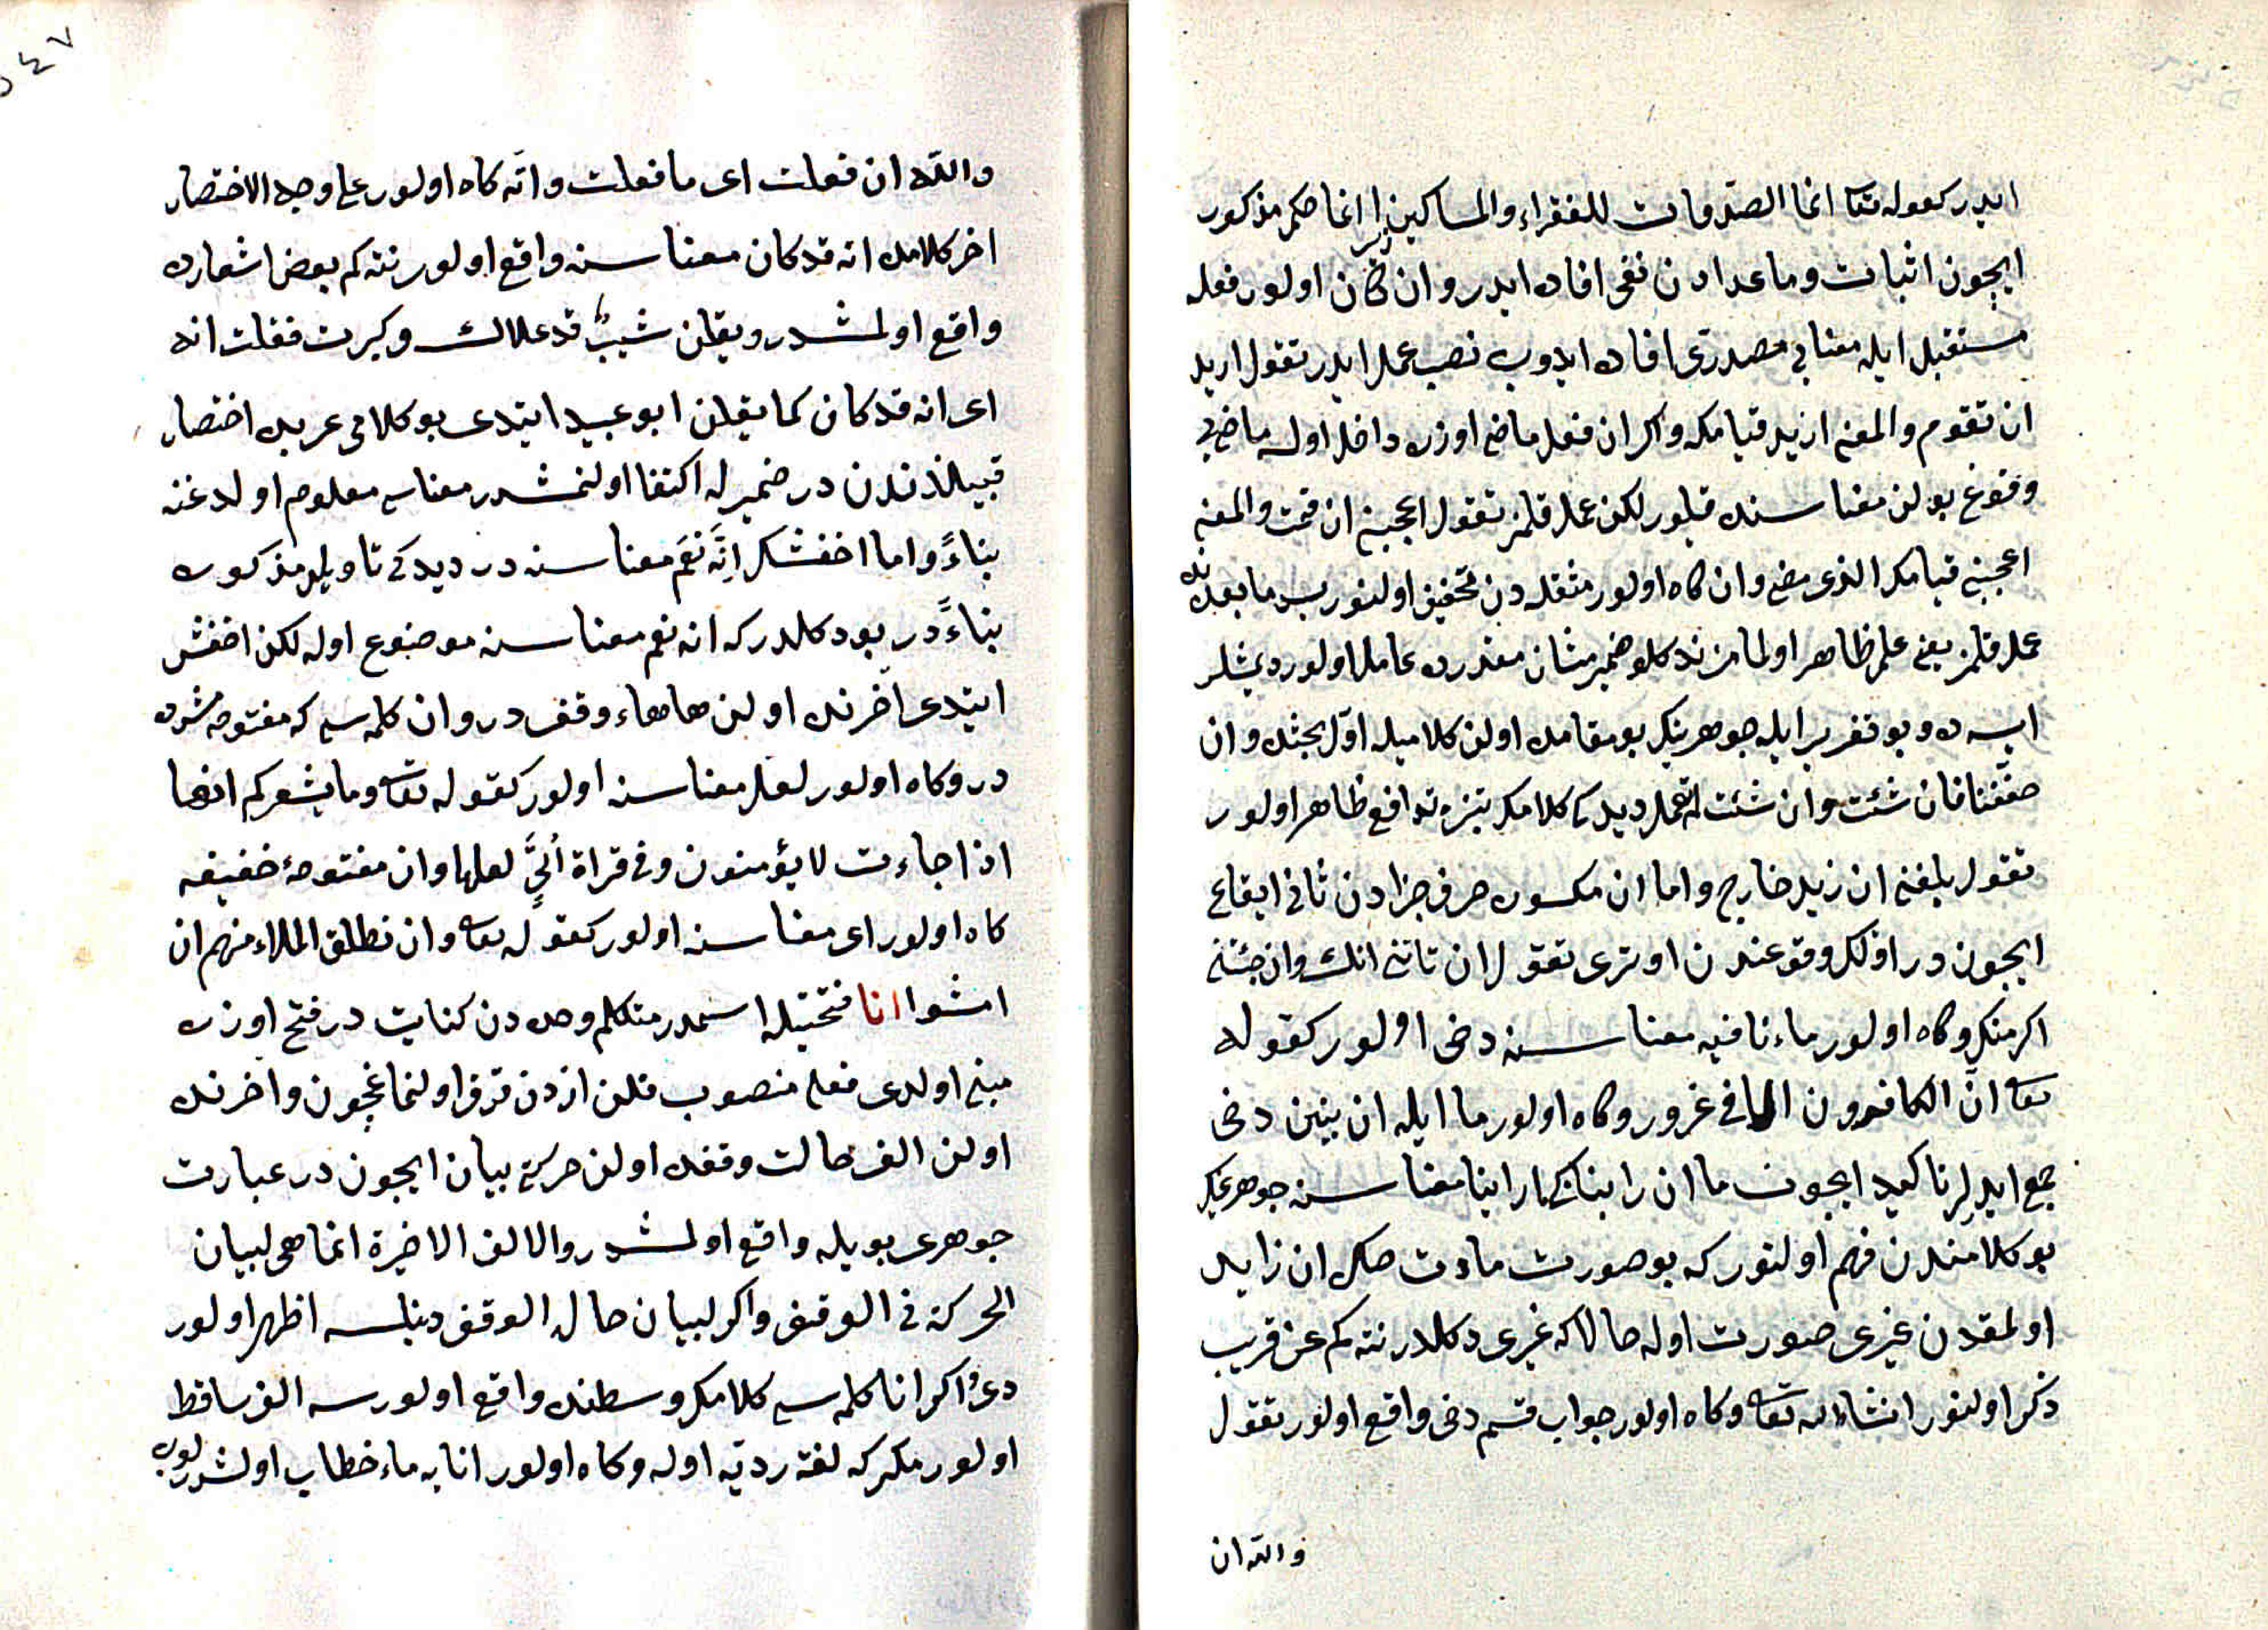 ايدر كقوله تعا انما الصدقات للفقراء والمساكين انما حكم مذكور
ايچون اثبات وما عدادن نفى افاده ايدر وان كاه اولور فعل
مستقبل ايله معناى مصدرى افاده ايدوب نصب عمل ايدر تقول اريد
ان تقوم والمعنى اريد قيامك واكر ان فعل ماضى اوزره داخل اوله ماضى
وقوع بولن معناسنه قيلور لكن عمل قلمز تقول اعجبنى ان قمت والمعنى
اعجبنى قيامك الذى مضى وان كاه اولور مثقله دن تخفيف اولنور پس ما بعدنده
عمل قلمز يعنى عمل ظاهر اولماز ضمير شان مقدرده عامل اولور ديمشلر
ايسه ده بو تقرير ايله جوهرينك بو مقامده اولن كلاميله اول بحثده وان
خففتا فان شئت وان شئت لم تعمل ديدكى كلامك بينده توافع ظاهر اولور
تقول بلغنى ان زيد خارج واما ان مكسوره حرف جزادن ثانى ايقاع
ايچون در اولك وقوعندن اوترى تقول ان تاتنى اتك وان جئتنى
اكرمتك وكاه اولور ماء نافيه معناسنه دخى اولور كقوله
تعا ان الكافرون الا فى غرور وكاه اولور ما ايله ان بينن دخى
جمع ايدلر تاكيد ايچون ما ان راينا كما راينا معناسنه جوهرينك
بو كلامندن فهم اولنور كه بو صورت ماده ان زايد
اولمقدن غيرى صورت اوله حالا كه غيرى دكلدر نته كم عن قريب
ذكر اولنور انشاء الله تعا وكاه اولور جواب قسم دخى واقع اولور تقول
والله ان
والله ان فعلت اى ما فعلت وانه كاه اولور على وجه الاختصار
اخر كلامده انه قد كان معناسنه واقع اولور نته كم بعض اشعارده
واقع اولمشدر ويقلن شيب قد علاك وكبرت فقلت انه
اى انه قد كان كما يقلن ابو عبيد ايتدى بو كلام عربده اختصار
قبيلندندر ضمير له اكتفا اولنمشدر معناسى معلوم اولدغنه
بناءً واما اخفشك انه نعم معناسنه در ديدكى تاويل مذكوره
بناءً در يوق دكلدر كه انه نعم معناسنه موضوع اوله لكن اخفش
ايتدى اخرنده اولن هاهاء وقف در وان كلمه سى كه مفتوحه مشدده
در وكاه اولور لعل معناسنه اولور كقوله تعا وما يشعركم انها
اذا جاءت لا يؤمنون وفى قراة ابى لعلها وان مفتوحه خفيفه
كاه اولور اى معناسنه اولور كقوله تعا وانطلق الملاء منهم ان
امشوا انا فتحتيله اسمدر متكلم وحده دن كنايت در فتح اوزره
مبنى اولدى فعلى منصوب قلن ان دن فرق اولنماغچون واخرنده
اولن الف حالت وقفده اولن حركه بيان ايچون در عبارت
جوهرى بويله واقع اولمشدر والالف الاخيرة انما هى لبيان
الحركة فى الوقف واكر لبيان حال الوقف دينلسه اظهر اولور
دى اكر انا كلمه سى كلامك وسطنده واقع اولورسه الف ساقط
اولور مكر كه لغة رديه اوله وكاه اولور انا يه تاء خطاب اولشور